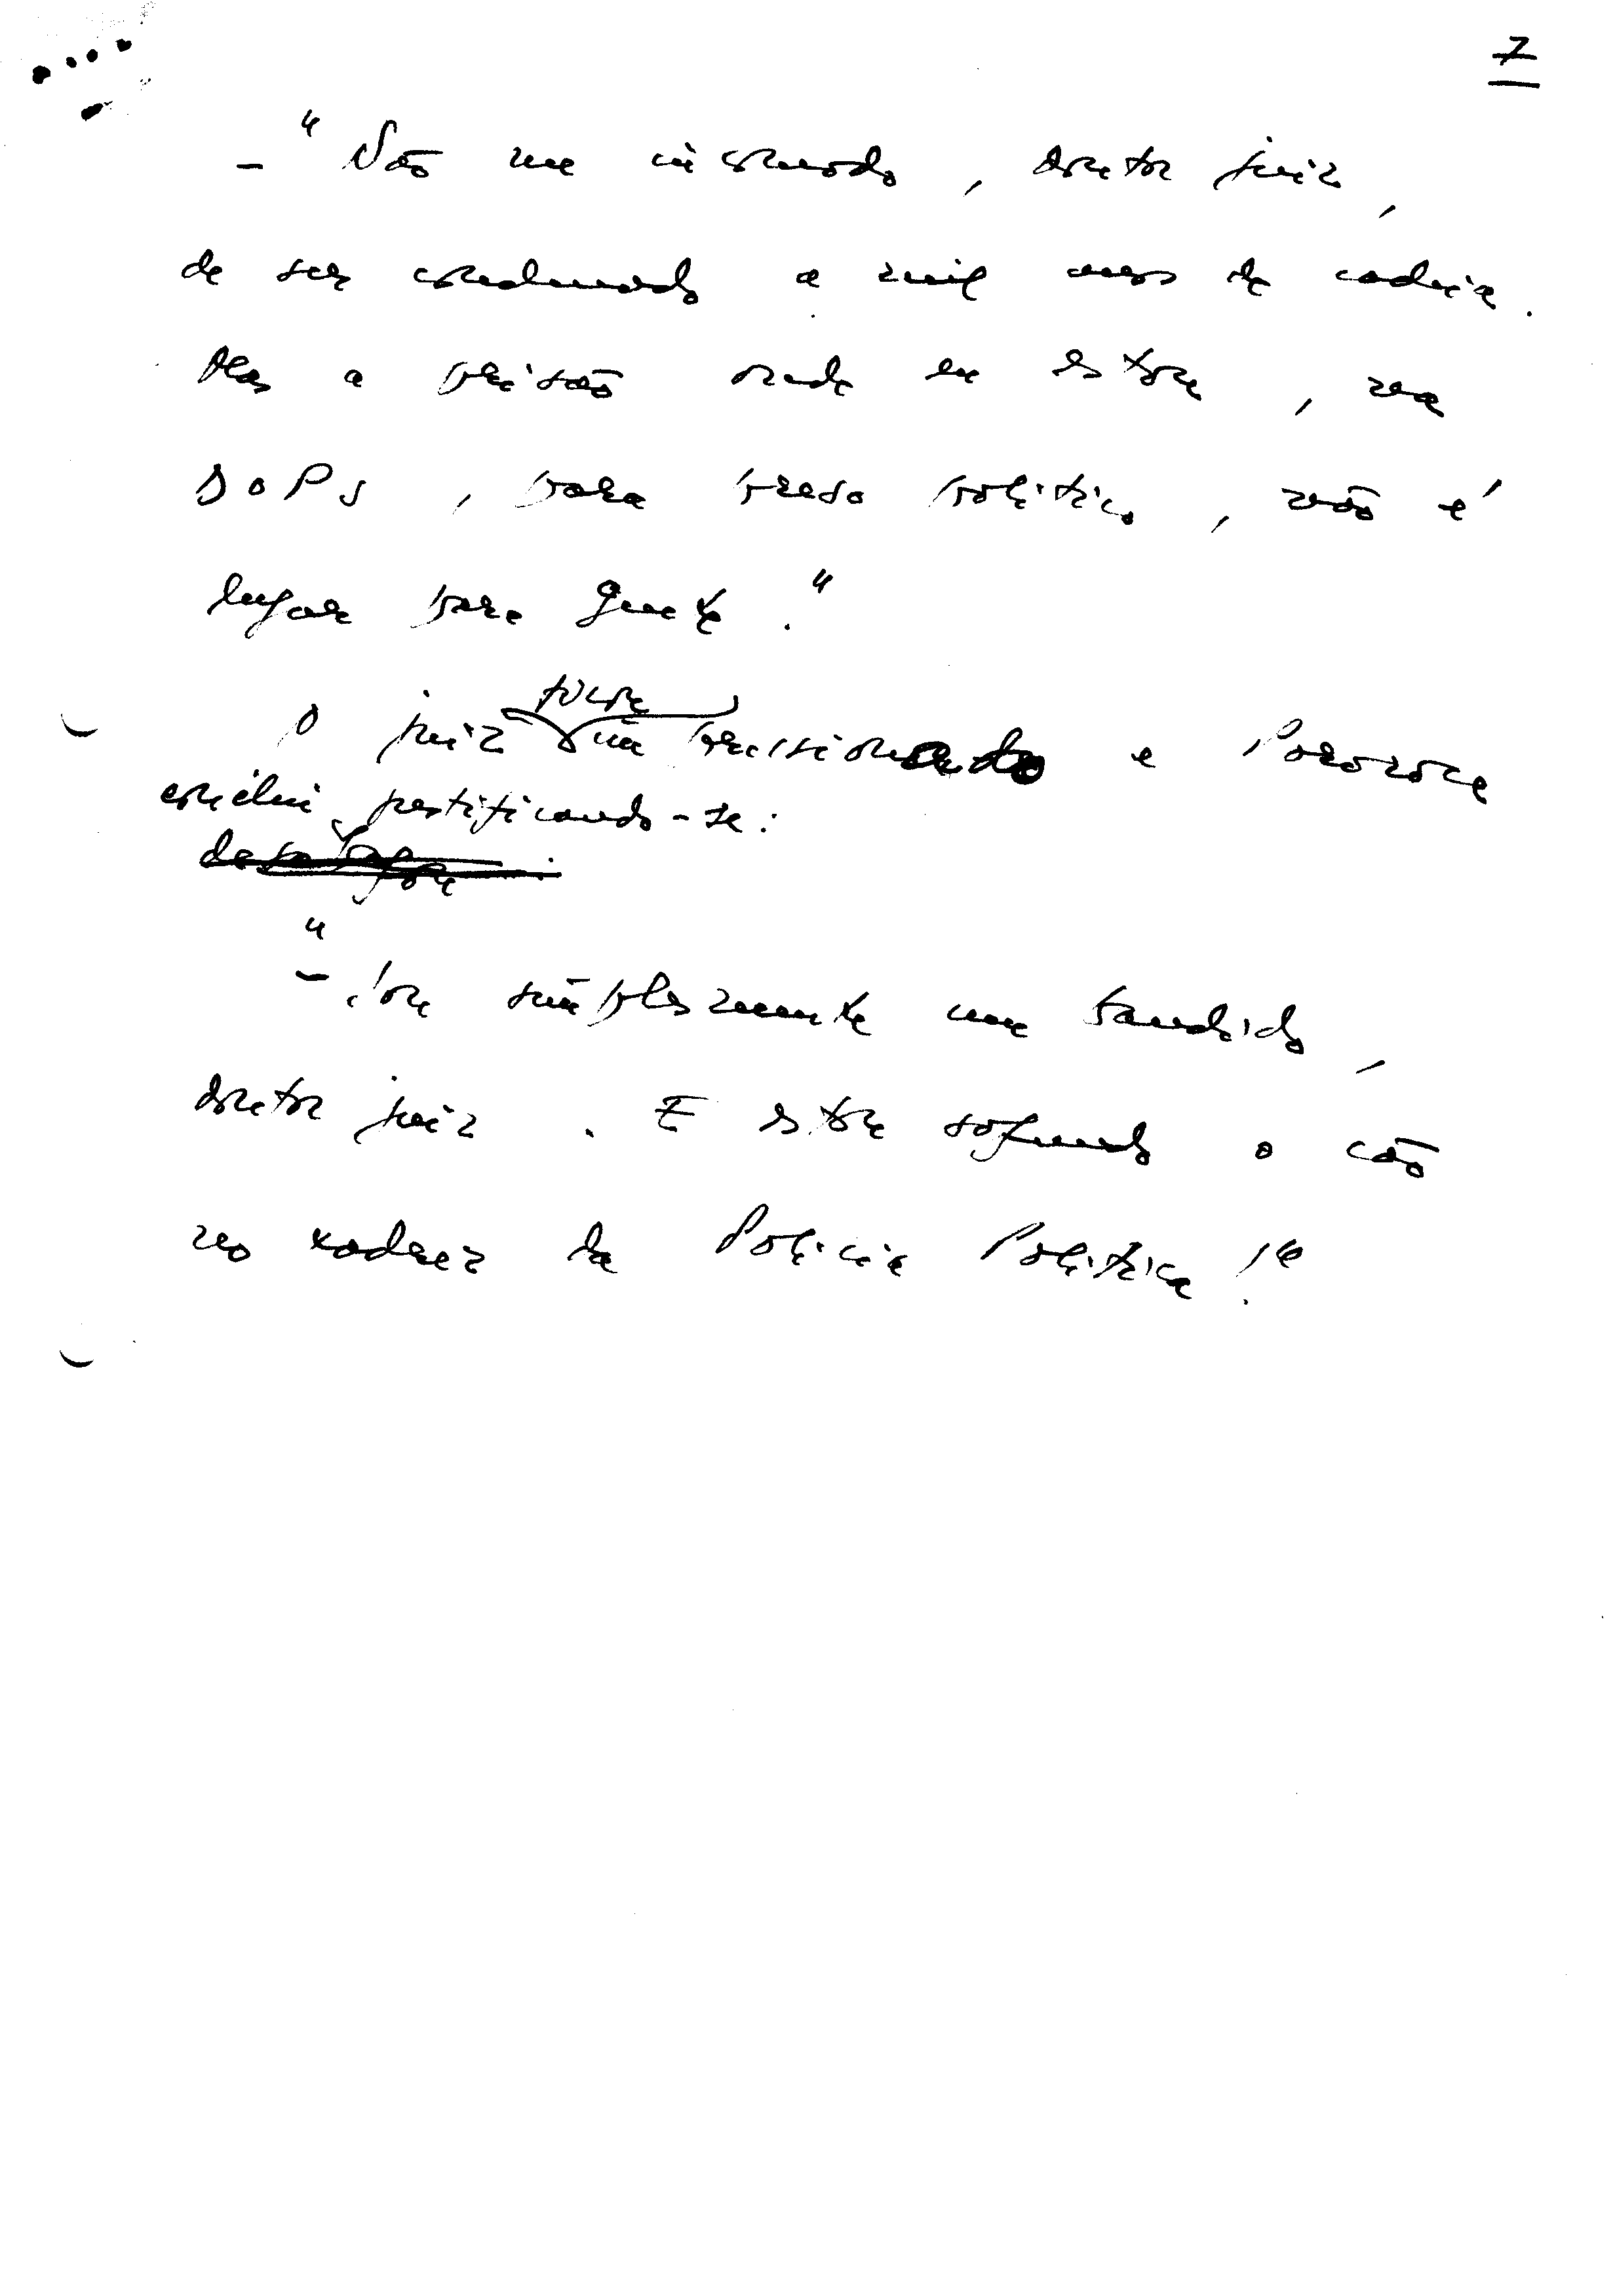 7
— "Não me incomodo, doutor juiz,
de ser condenado a mil anos de cadeia.
Mas a prisão onde eu estou, na
DOPS, para preso político, não é
lugar para gente."
ficou
O juiz impressionado e Pororoca
conclui justificando-se:
desabafou:
"— Sou simplesmente um bandido,
doutor juiz. E estou sofrendo o cão
no xadrez da Polícia Política!"